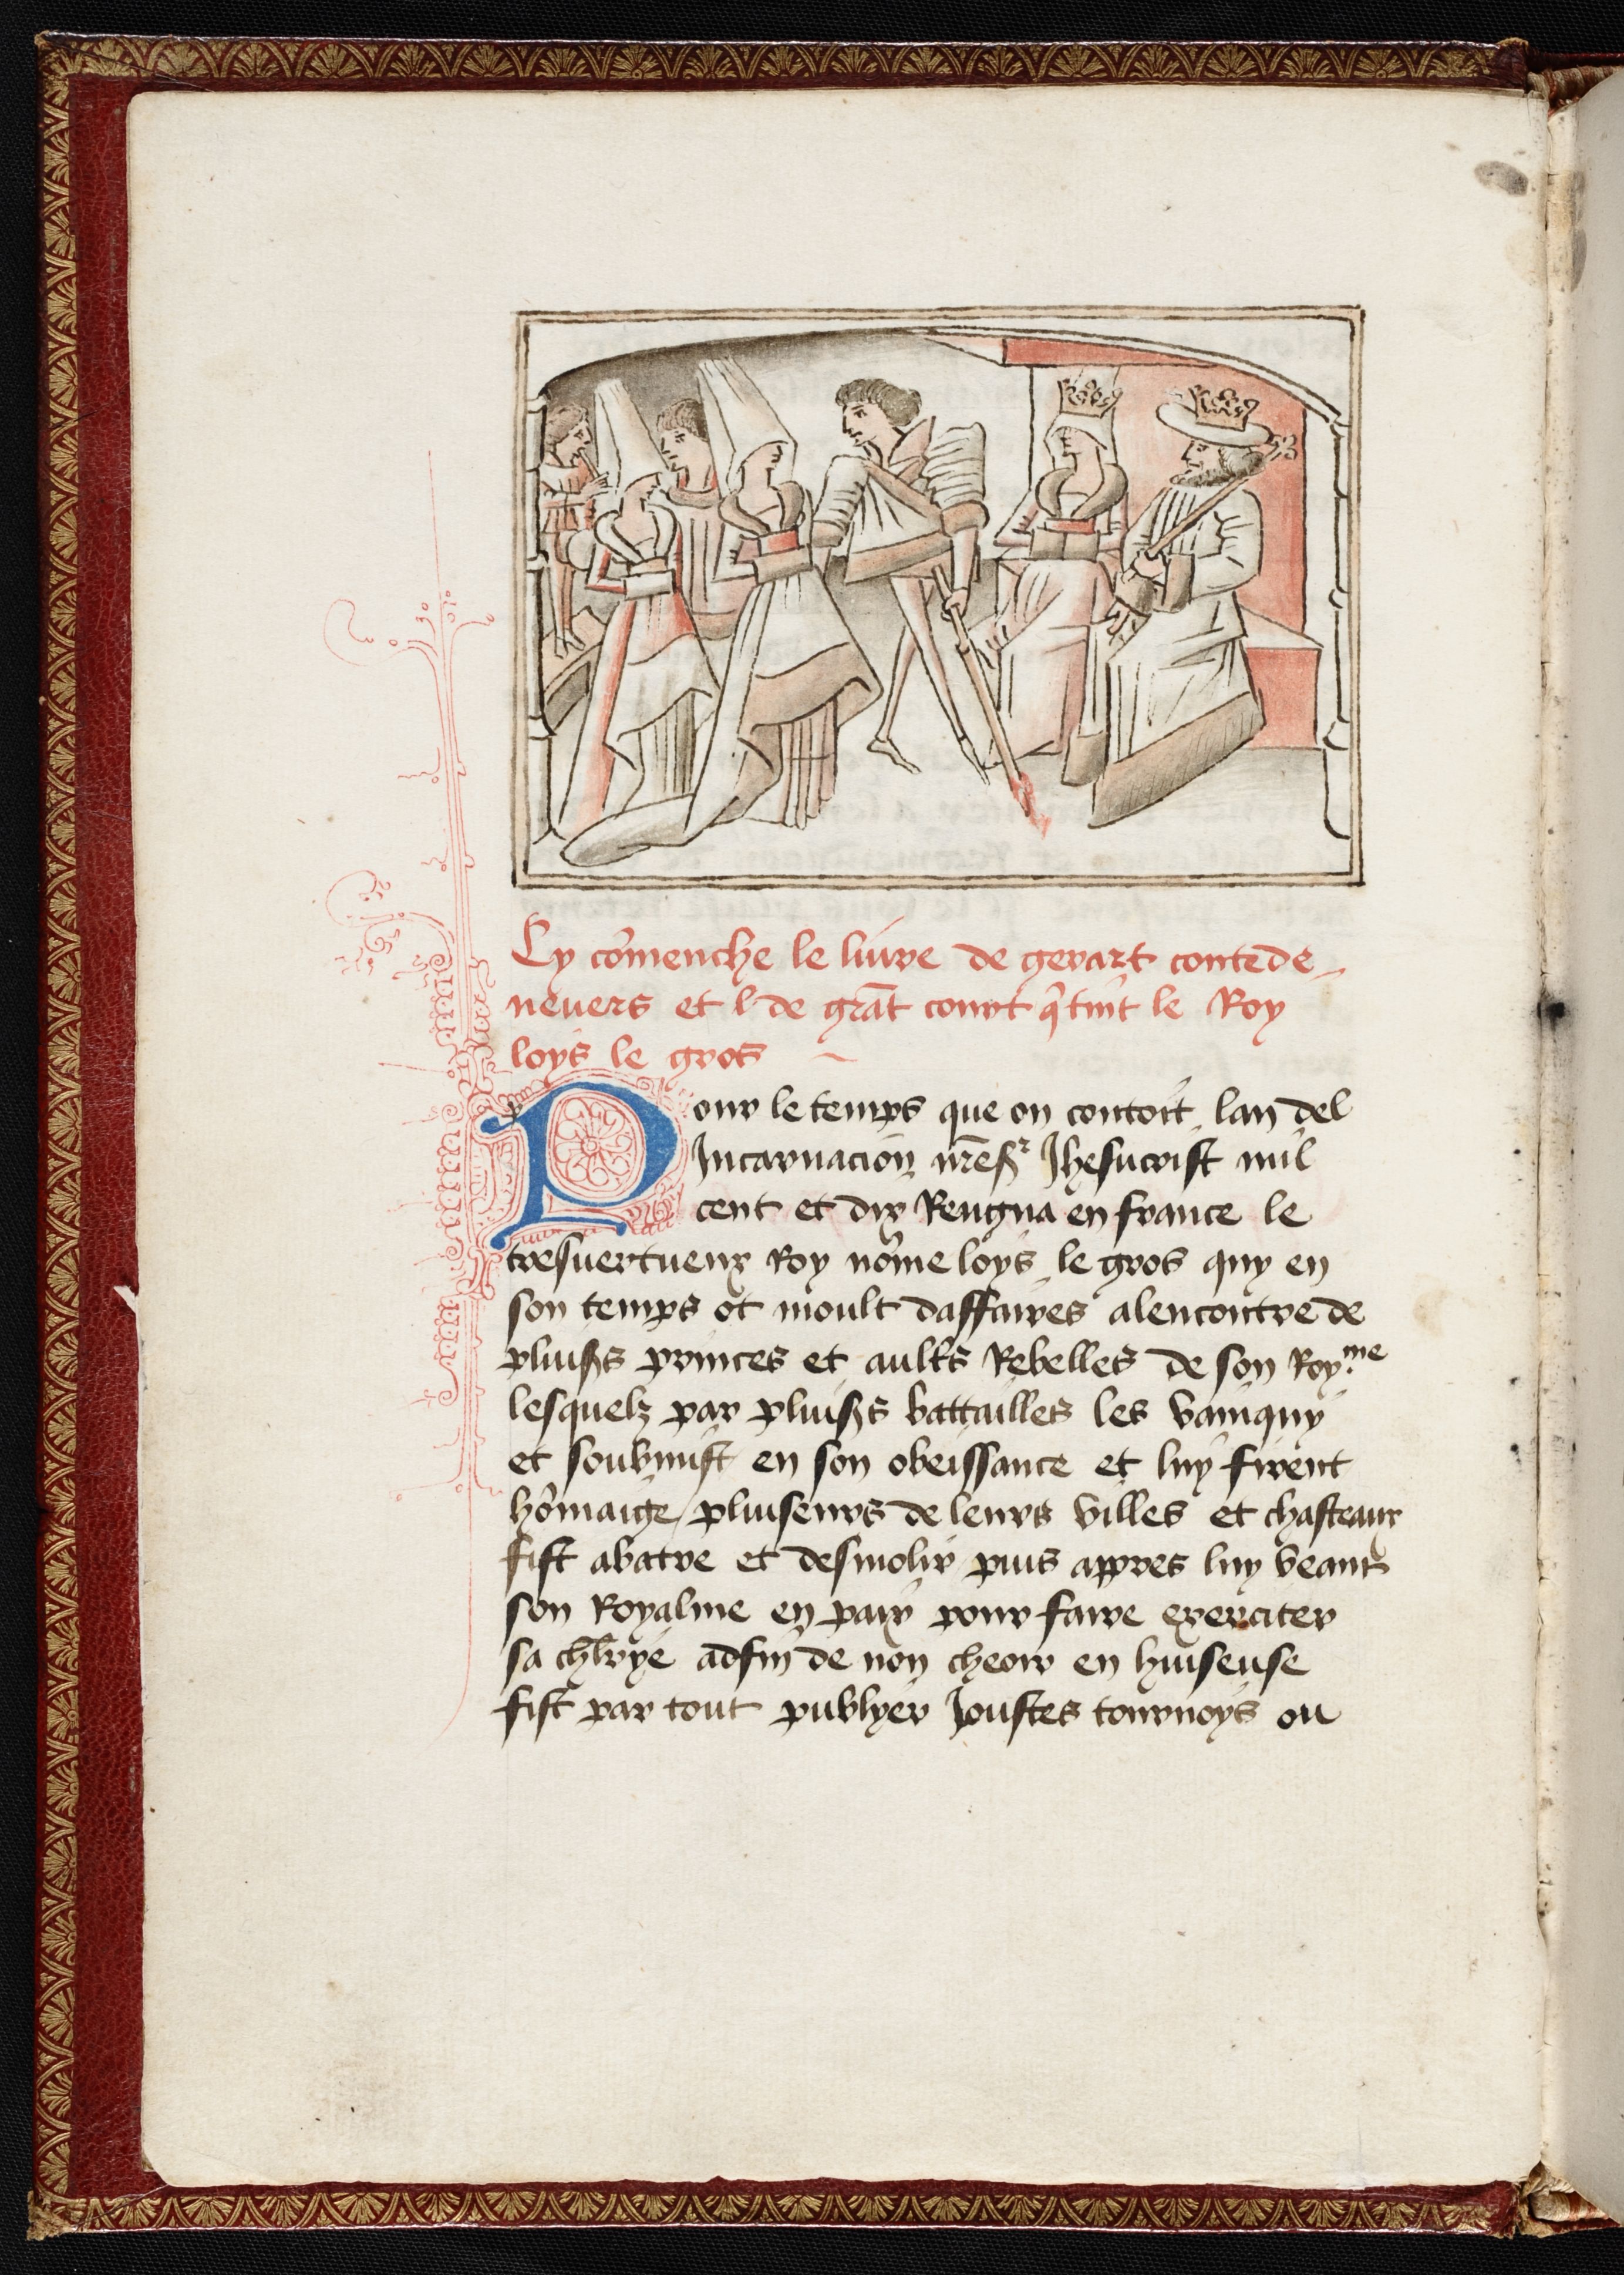 Cy com̃enche le liure de gerart conte de
neuers et l. de grãt court q̃ tint le Roy
loys le gros
Pour le temps que on contoit lan del
Incarnacion nr̃e sr Jhesucrist mil
cent et dix Rengna en france le
tresuertueux Roy nom̃e loys le gros quy en
son temps ot moult daffaires alencontre de
pluiss princes et aultrs Rebelles de son Roy.me
lesquelz par pluiss battailles les vainquy
et soubmist en son obeissance et luy firent
hom̃aige / pluiseurs de leurs villes et chasteaux
fist abatre et desmolir puis appres luy veant
son Royalme en paix pour faire exerciter
sa chlrye adfin de non cheoir en huiseuse
fist par tout publyer Joustes tournoys ou